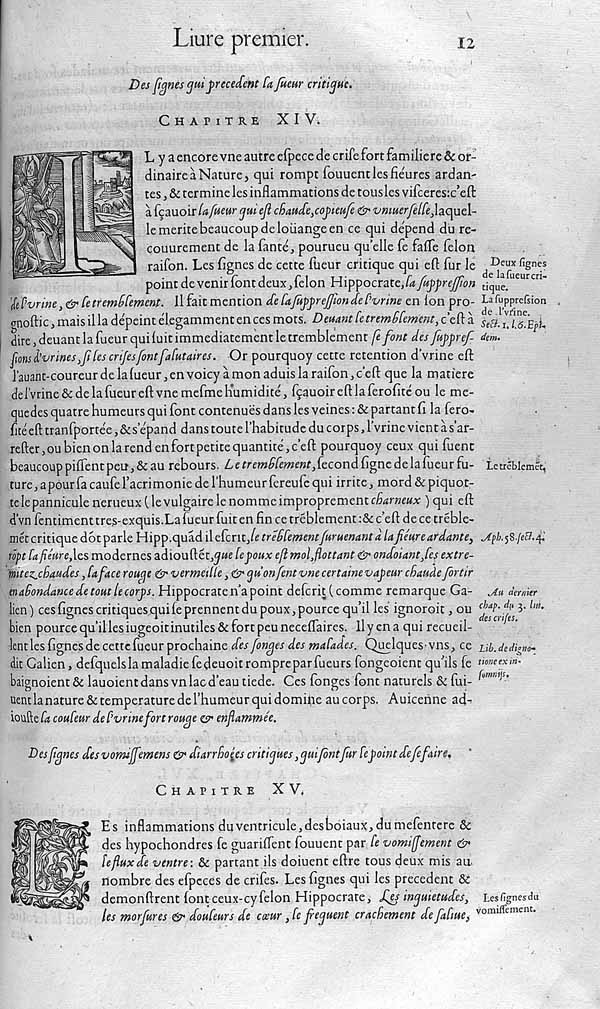 Liure premier. 12
Des ſignes qui precedent la ſueur critique.
CHAPITRE XIV.
IL y a encore vne autre eſpece de criſe fort familiere & or-
dinaire à Nature, qui rompt ſouuent les fiéures ardan-
tes, & termine les inflammations de tous les viſceres: c'eſt
à ſçauoir la ſueur qui eſt chaude, copieuſe & vniuerſelle, laquel-
le merite beaucoup de loüange en ce qui dépend du re-
couurement de la ſanté, pourueu qu'elle ſe faſſe ſelon
raiſon. Les ſignes de cette ſueur critique qui eſt ſur le
point de venir ſont deux, ſelon Hippocrate, la ſuppreſſion
de l'vrine, & le tremblement. Il fait mention de la ſuppreſſion de l'vrine en ſon pro-
gnoſtic, mais il la dépeint élegamment en ces mots. Deuant le tremblement, c'eſt à
dire, deuant la ſueur qui ſuit immediatement le tremblement ſe font des ſuppreſ-
ſions d'vrines, ſi les criſes ſont ſalutaires. Or pourquoy cette retention d'vrine eſt
l'auant-coureur de la ſueur, en voicy à mon aduis la raiſon, c'eſt que la matiere
de l'vrine & de la ſueur eſt vne meſme humidité, ſçauoir eſt la ſeroſité ou le me-
gue des quatre humeurs qui ſont contenuës dans les veines: & partant ſi la ſero-
ſité eſt tranſportée, & s'épand dans toute l'habitude du corps, l'vrine vient à s'ar-
reſter, ou bien on la rend en fort petite quantité, c'eſt pourquoy ceux qui ſuent
beaucoup piſſent peu, & au rebours. Le tremblement, ſecond ſigne de la ſueur fu-
ture, a pour ſa cauſe l'acrimonie de l'humeur ſereuſe qui irrite, mord & piquot-
te le pannicule nerueux (le vulgaire le nomme improprement charneux) qui eſt
d'vn ſentiment tres-exquis. La ſueur ſuit en fin ce trẽblement: & c'eſt de ce trẽble-
mẽt critique dõt parle Hipp. quãd il eſcrit, le trẽblement ſuruenant à la fiéure ardante,
rõpt la fiéure, les modernes adiouſtẽt, que le poux eſt mol, flottant & ondoiant, les extre-
mitez chaudes, la face rouge & vermeille, & qu'on ſent vne certaine vapeur chaude ſortir
en abondance de tout le corps. Hippocrate n'a point deſcrit (comme remarque Ga-
lien) ces ſignes critiques qui ſe prennent du poux, pource qu'il les ignoroit, ou
bien pource qu'il les iugeoit inutiles & fort peu neceſſaires. Il y en a qui recueil-
lent les ſignes de cette ſueur prochaine des ſonges des malades. Quelques-vns, ce
dit Galien, deſquels la maladie ſe deuoit rompre par ſueurs ſongeoient qu'ils ſe
baignoient & lauoient dans vn lac d'eau tiede. Ces ſonges ſont naturels & ſui-
uent la nature & temperature de l'humeur qui domine au corps. Auicenne ad-
iouſte la couleur de l'vrine fort rouge & enflammée.
Deux ſignes
de la ſueur cri-
tique.
La ſuppreſsion
de l'vrine.
Sect. 1. l. 6. Epi-
dem.
Le trẽblemẽt,
Aph. 58. ſect. 4.
Au dernier
chap. du 3. liu.
des criſes.
Lib. de digno-
tione ex in-
ſomnijs.
Des ſignes des vomiſſemens & diarrhoées critiques, qui ſont ſur le point de ſe faire.
CHAPITRE XV.
LEs inflammations du ventricule, des boiaux, du meſentere &
des hypochondres ſe guariſſent ſouuent par le vomiſſement &
le flux de ventre: & partant ils doiuent eſtre tous deux mis au
nombre des eſpeces de criſes. Les ſignes qui les precedent &
demonſtrent ſont ceux-cy ſelon Hippocrate, Les inquietudes,
les morſures & douleurs de cœur, le frequent crachement de ſaliue,
Les ſignes du
vomiſſement.